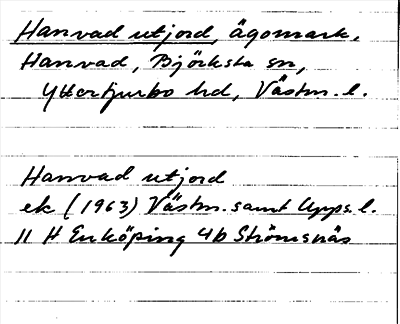 Hanvad utjord, ägomark,
Hanvad, Björksta sn,
Yttertjurbo hd, Västm. l.
Hanvad utjord
ek (1963) Västm. samt Upps. l.
11 H Enköping 4b Strömsnäs